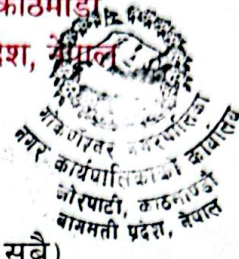 काठमाडौं
देश, नेपाल
गोकर्णेश्वर नगरपालिका
नगर कार्यपालिकाको कार्यालय
जोरपाटी, काठमाण्डौ
बागमती प्रदेश, नेपाल
सबै)